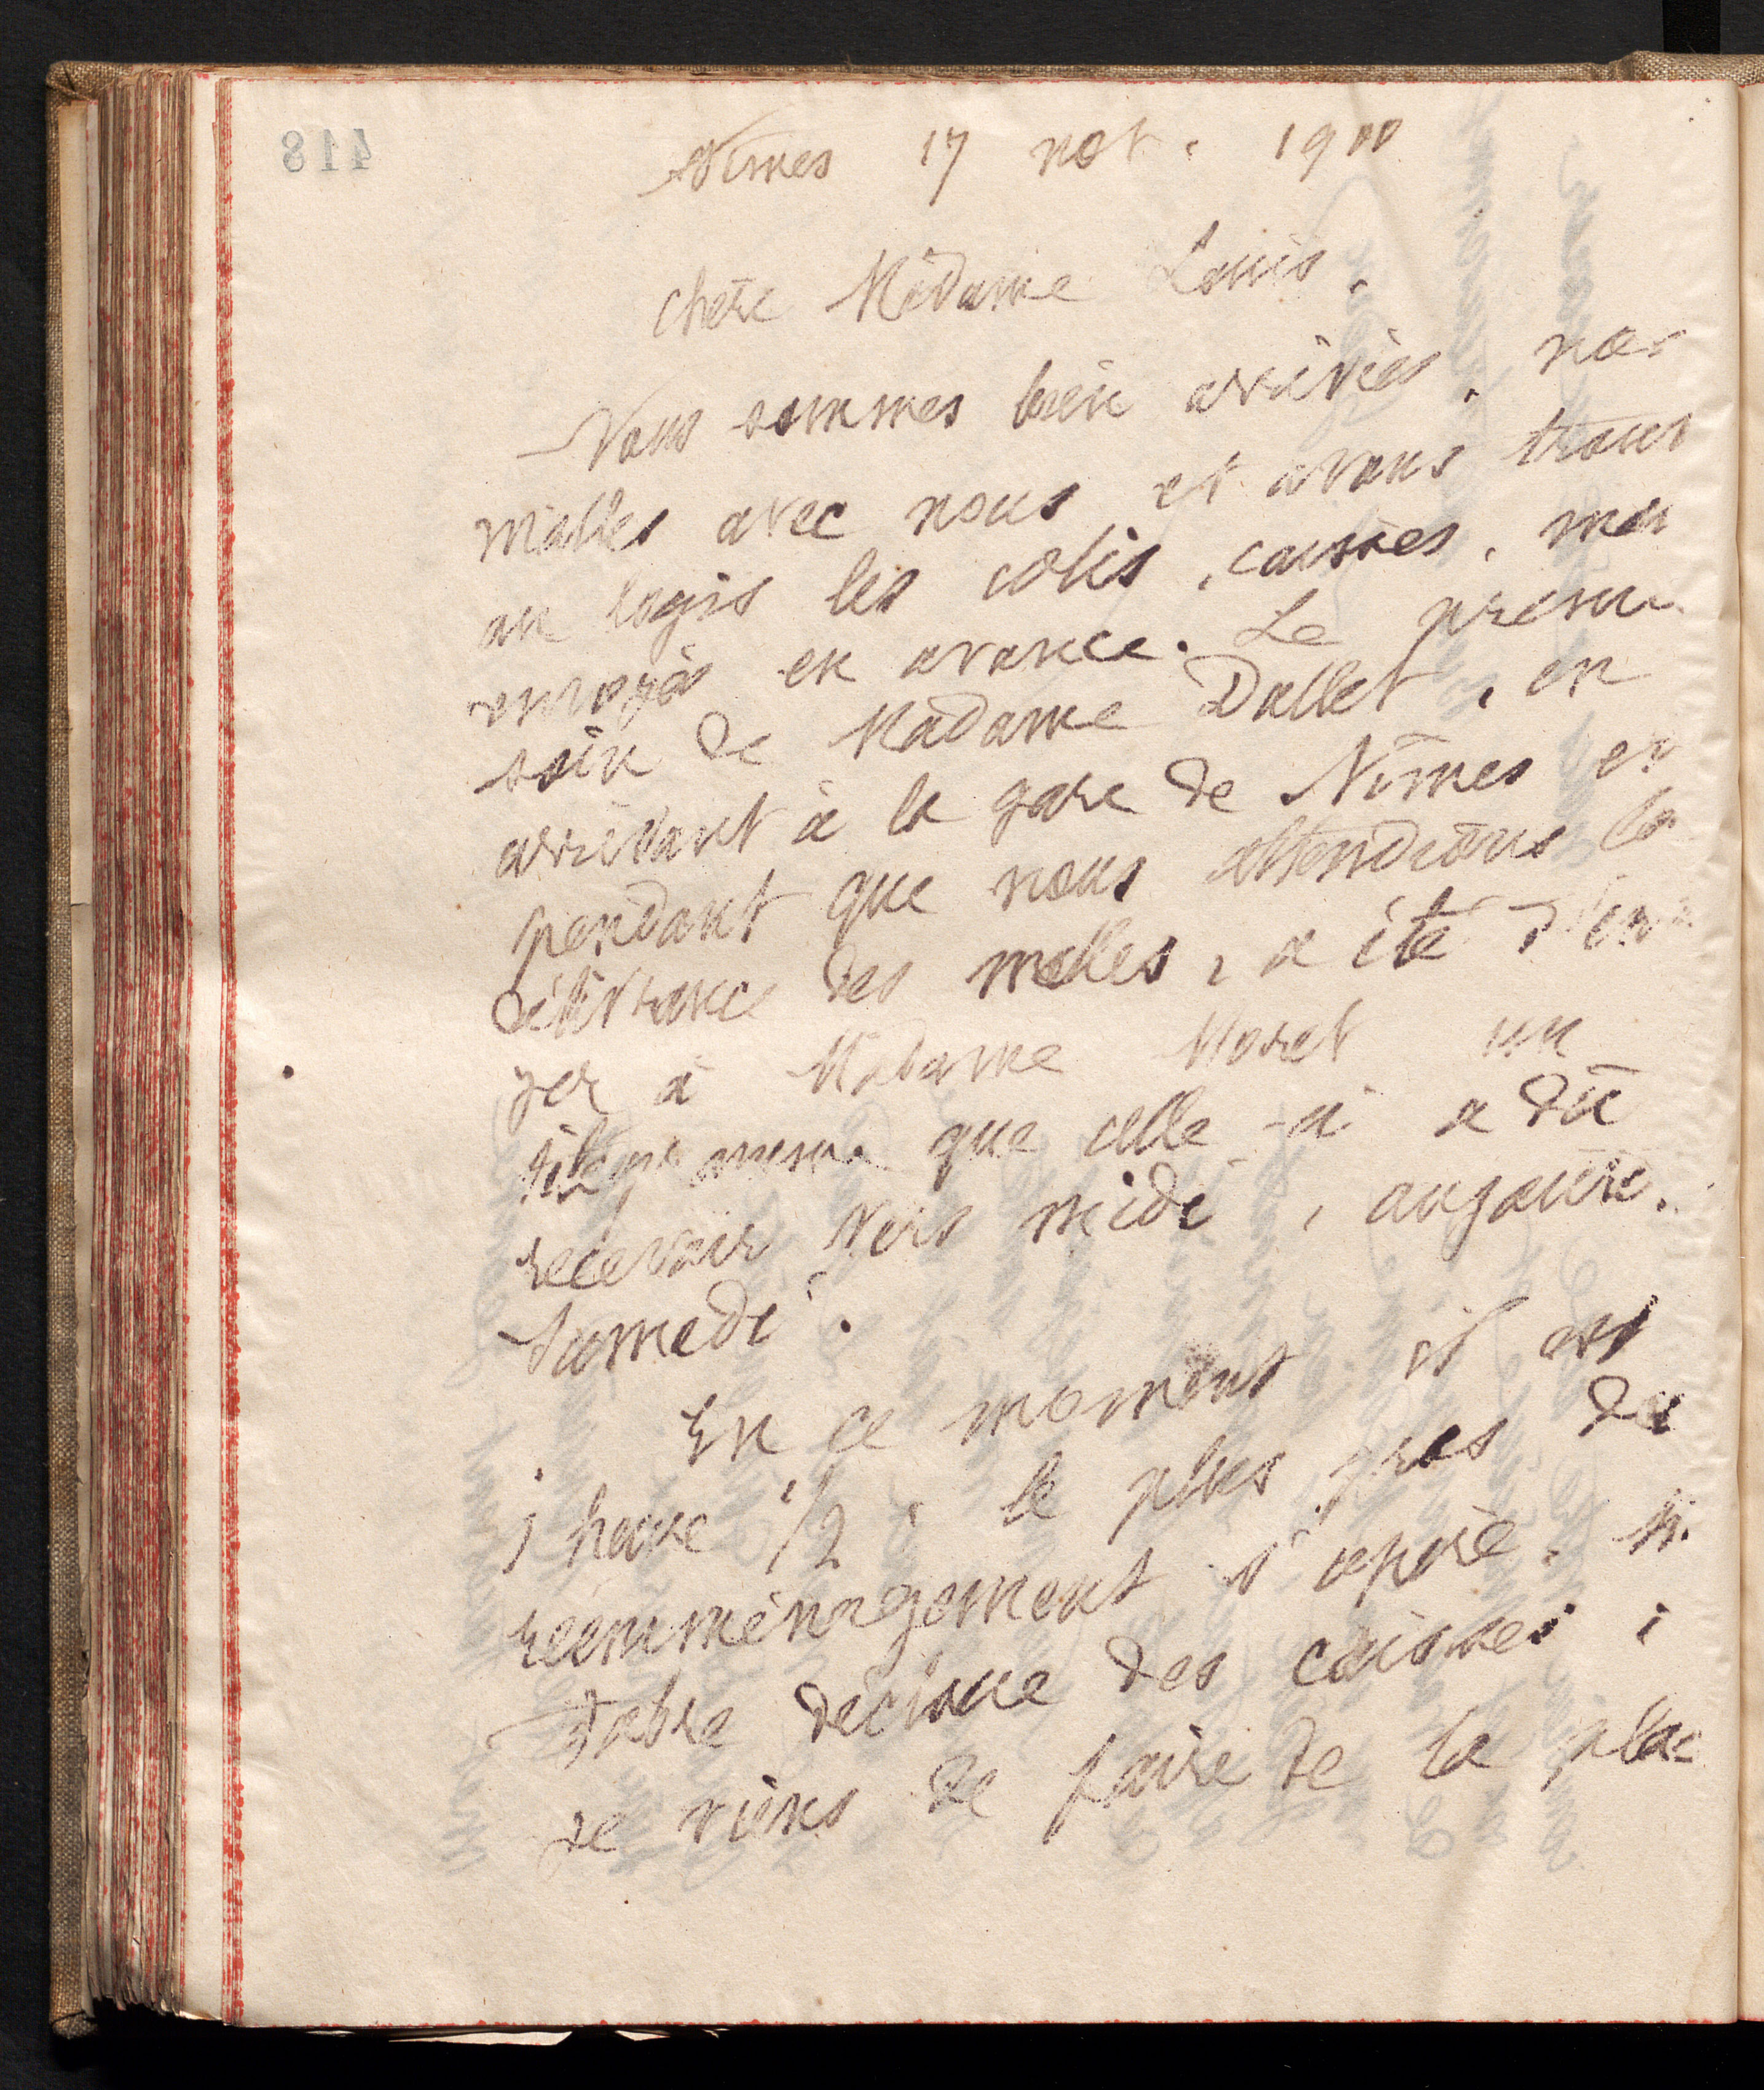 418
Nîmes 17 nov. 1900
Chère Madame Louis,
Nous sommes bien arrivés, nos
malles avec nous et avons trouvé
au logis les colis, caisses,
envoyés en avance. Le premier
soin de Madame Dallet, en
arrivant à la gare de Nîmes et
pendant que nous attendions la
délivrance des malles, a été d'envo-
yer à Madame Moret un
télégramme que celle-ci a dû
recevoir vers midi, aujourd.
samedi.
En ce moment il est
1 heure 1/2, le plus gros du
réemménagement s'opère. M.
Fabre décloue des caisses;
je viens de faire de la pla-